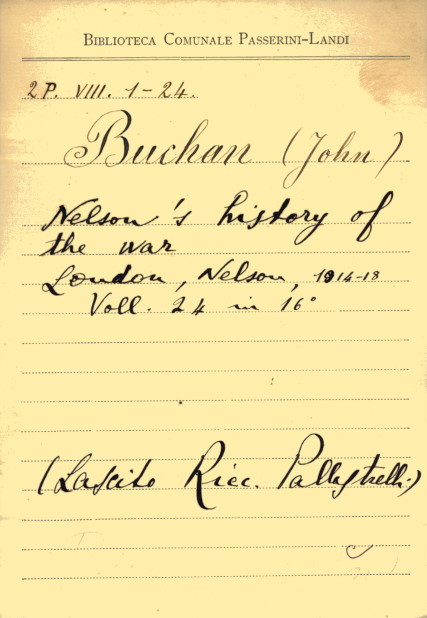 BIBLIOTECA COMUNALE PASSERINI-LANDI
2P. VIII. 1-24.
Buchan (John)
Nelson's history of
the war
London, Nelson, 1914-18
Voll. 24 in 16°
(Lascito Ricc. Pallastrelli)